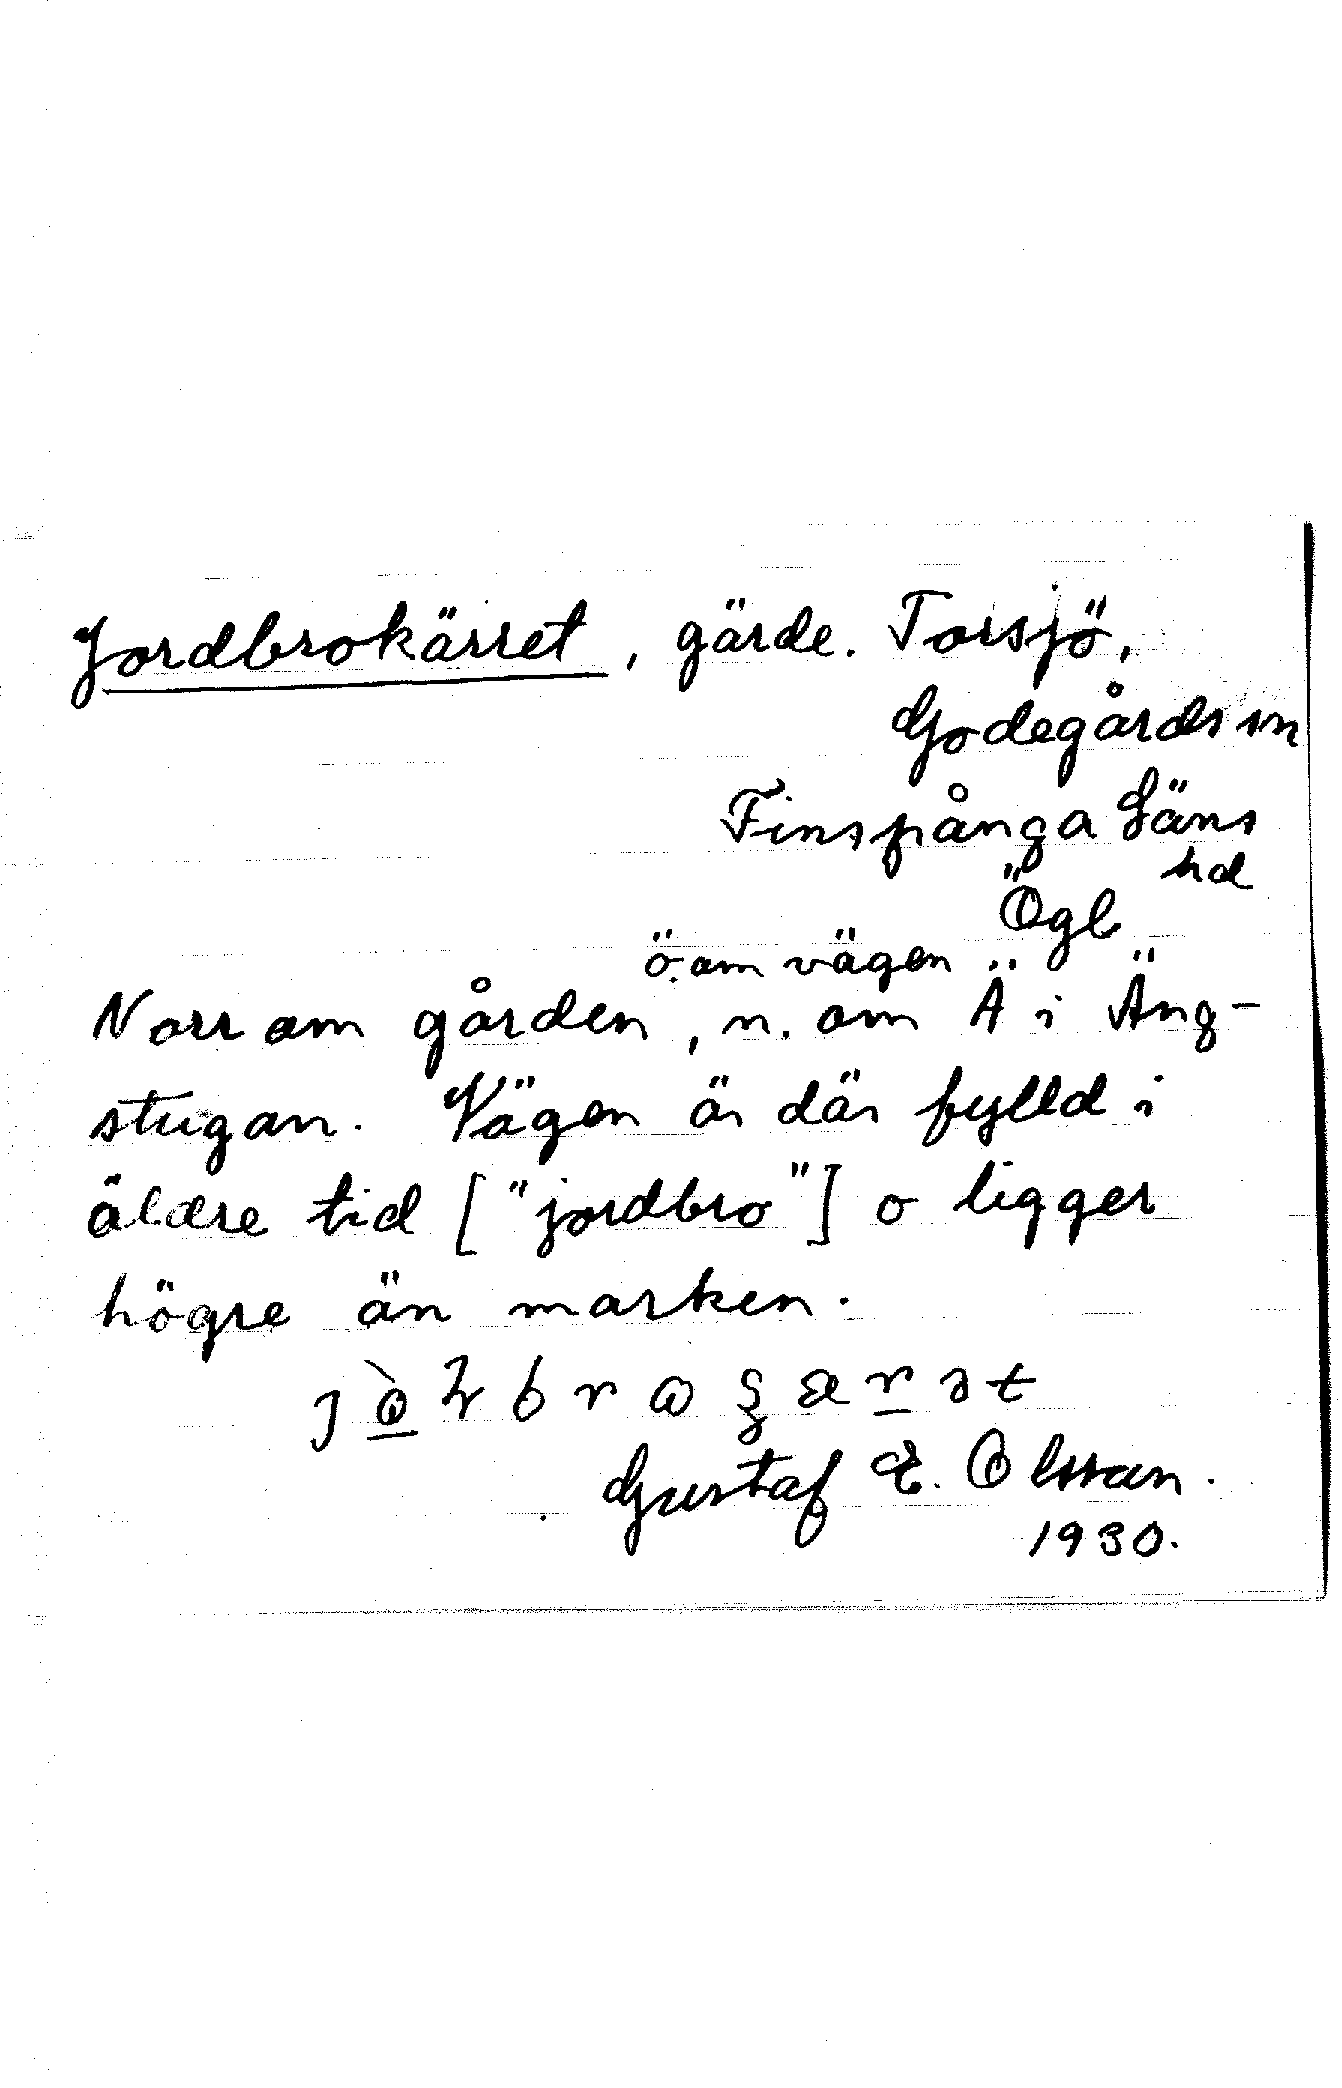 Jordbrokärret, gärde. Torsjö,
Godegårds sn
Finspånga Läns
hd
Ögl
ö. om vägen
Norr om gården, n. om Ä i Äng-
stugan. Vägen är där fylld i
äldre tid ["jordbro"] o ligger
högre än marken.
Gustaf E. Olsson.
1930.